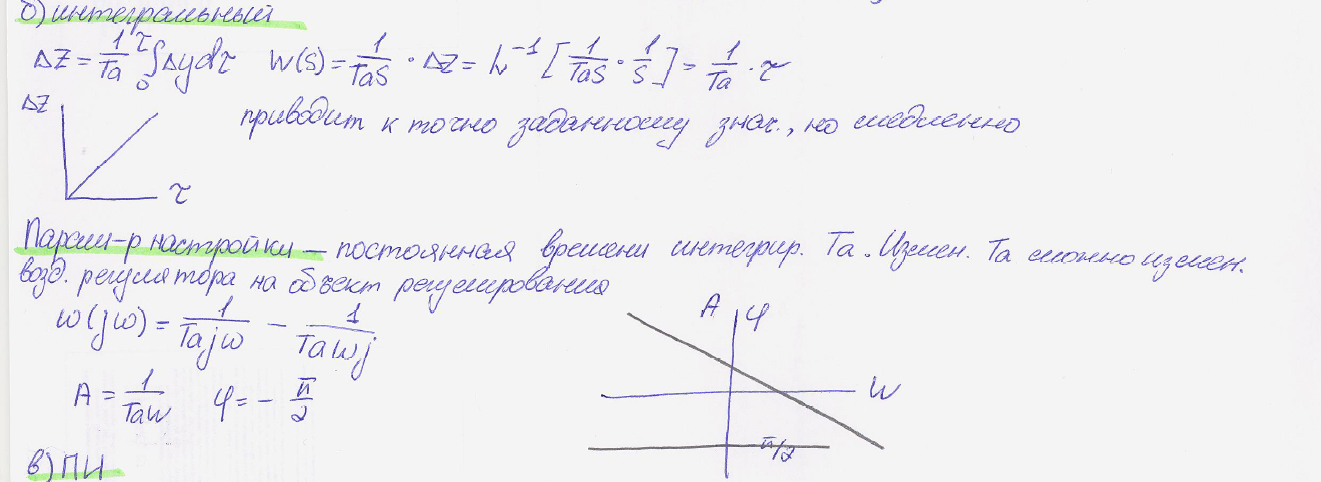 б) интегральный
ΔZ = 1/Ta ∫₀^τ Δy dτ W(S) = 1/TaS · ΔZ = L⁻¹ [1/TaS · 1/S] = 1/Ta · τ
ΔZ
приводит к точно заданному знач., но медленно
τ
Парам-р настройки – постоянная времени интегрир. Ta. Измен. Ta можно измен.
возд. регулятора на объект регулирования
W(jω) = 1/Tajω - 1/Taωj
A φ
A = 1/Taω φ = - π/2
W
π/2
в) ПИ